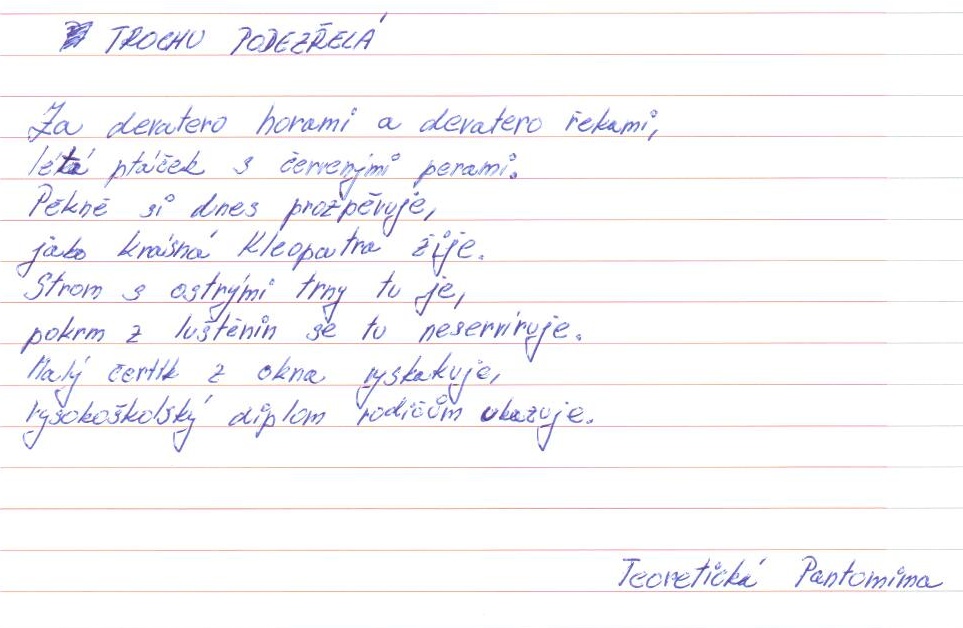 TROCHU PODEZŘELÁ
Za devatero horami a devatero řekami,
létá ptáček s červenými perami.
Pěkně si dnes prozpěvuje,
jako krásná Kleopatra žije.
Strom s ostrými trny tu je,
pokrm z luštěnin se tu neservíruje.
Malý čertík z okna vyskakuje,
vysokoškolský diplom rodičům ukazuje.
Teoretická Pantomima